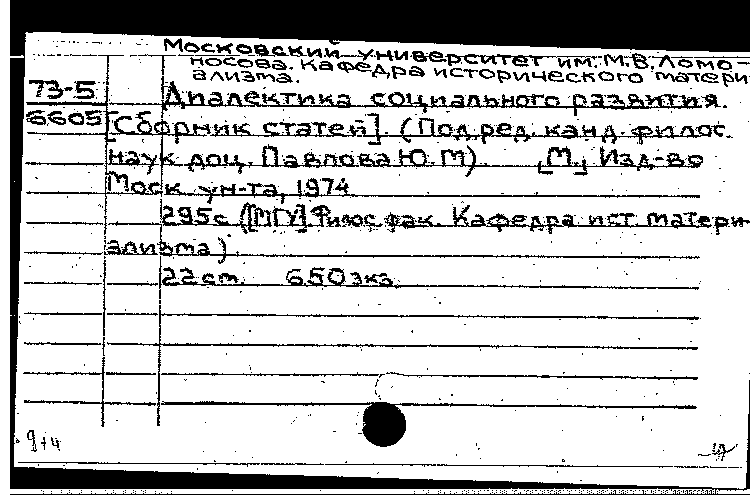 Московский университет им. М.В. Ломо-
носова. Кафедра исторического матери
ализма.
73-5
6605
Диалектика социального развития.
[Сборник статей]. (Под ред. канд. филос.
наук доц. Павлова Ю.М.) [М.] Изд-во
Моск. ун-та, 1974
295с ([МГУ]. Филос. фак. Кафедра ист. матери-
ализма)
22 cm. 650 экз.
9+4